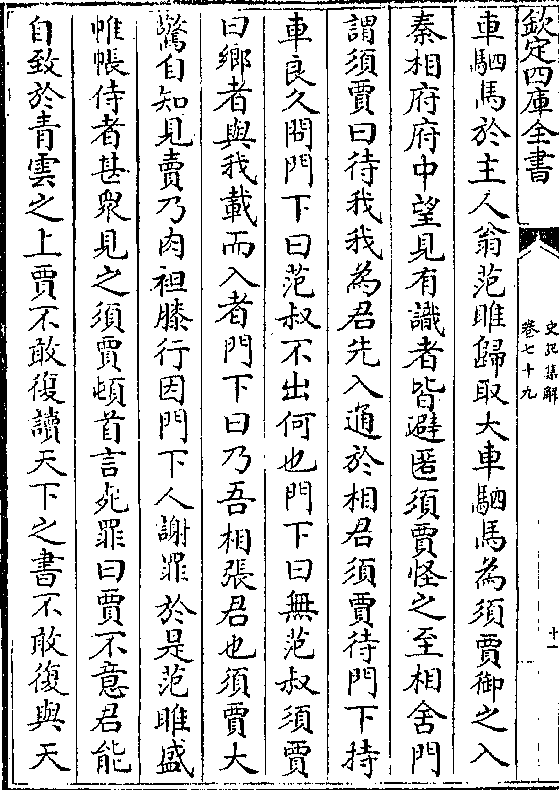 欽定四庫全書
史記集解
卷七十九
十一
車駟馬於主人翁范雎歸取大車駟馬為須賈御之入
秦相府府中望見有識者皆避匿須賈怪之至相舍門
謂須賈曰待我我為君先入通於相君須賈待門下持
車良久問門下曰范叔不出何也門下曰無范叔須賈
曰鄉者與我載而入者門下曰乃吾相張君也須賈大
驚自知見賣乃肉袒膝行因門下人謝罪於是范雎盛
帷帳侍者甚眾見之須賈頓首言死罪曰賈不意君能
自致於青雲之上賈不敢復讀天下之書不敢復與天